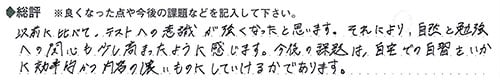 ◆総評 ※良くなった点や今後の課題などを記入して下さい。
以前に比べて、テストへの意識が強くなったと思います。それにより、自然と勉強
への関心も少し高まったように感じます。今後の課題は、自宅での自習をいか
に効率良かつ内容の濃いものにしていけるかであります。